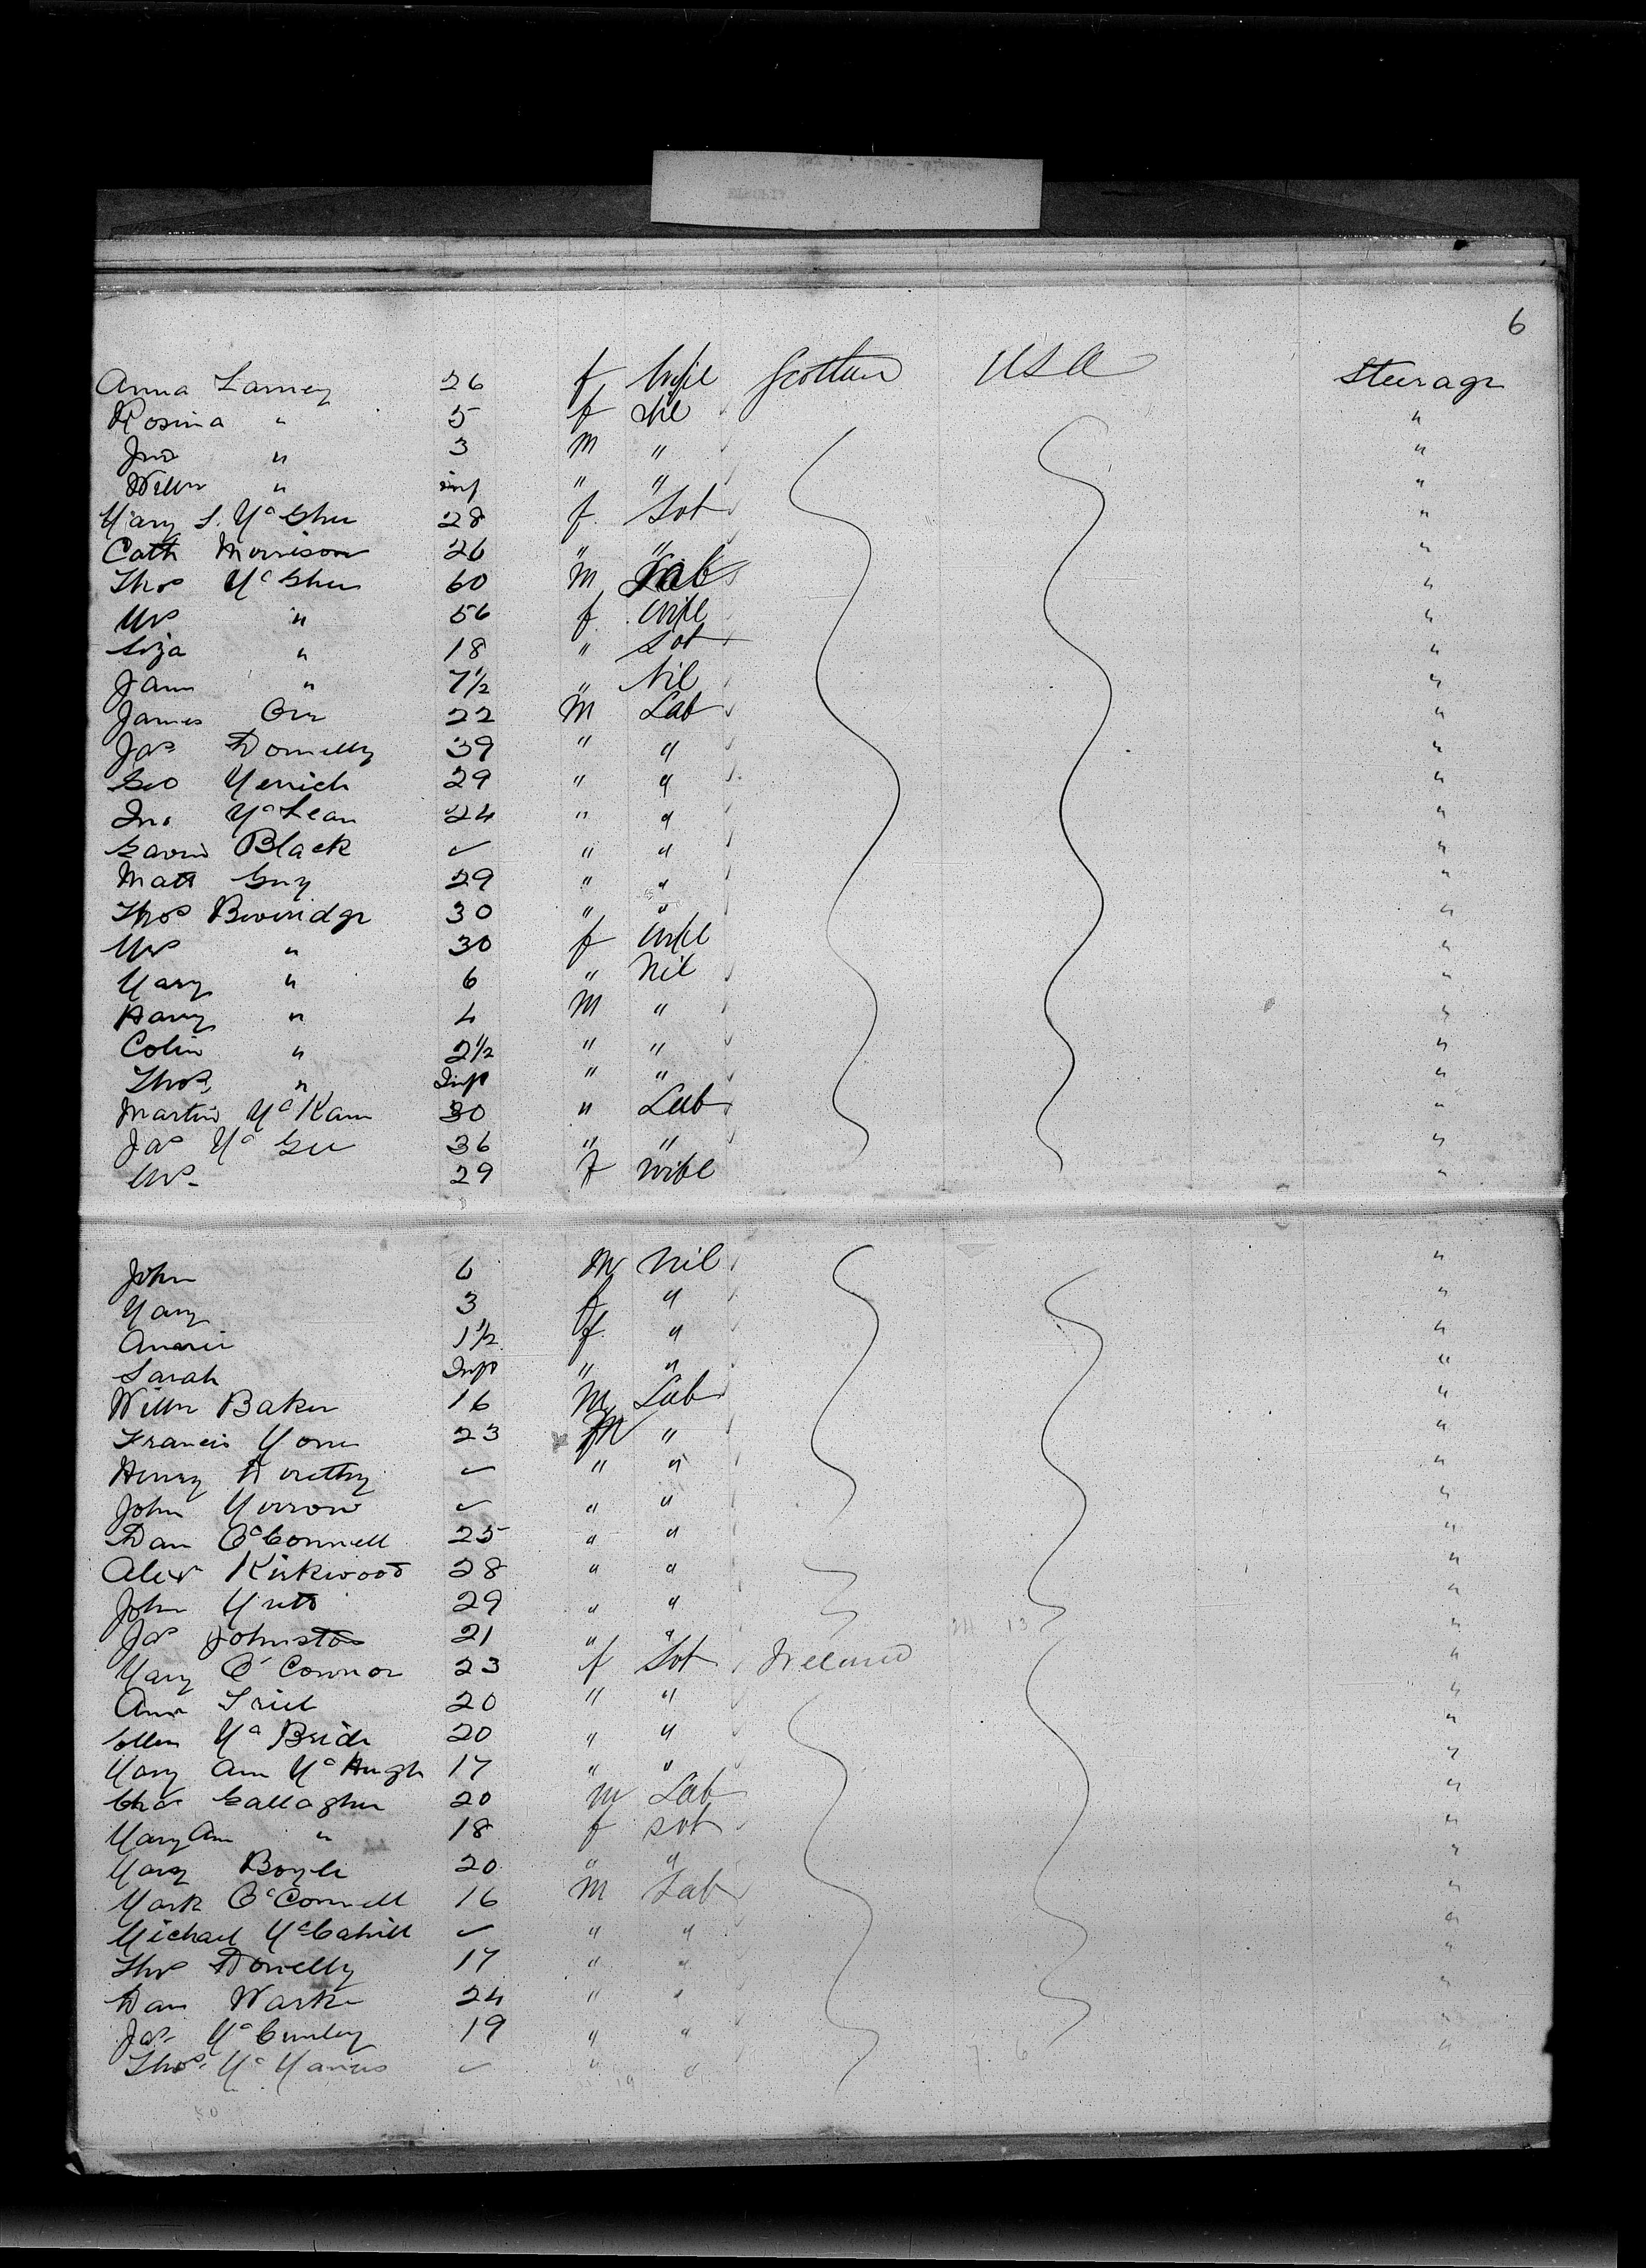 6
Anna Lamey 26 f Wife Scotland USA Steerage
Rosina " 5 f Nil "
Jno " 3 M " "
Willm " inf " " "
Mary S. McGhee 28 f. Svt "
Cath Morrison 26 " " "
Thos McGhee 60 M Lab "
Mrs " 56 f. Wife "
Liza " 18 " Svt "
Jane " 7½ " Nil "
James Orr 22 M Lab "
Jas Donnelly 39 " " "
Geo Merrick 29 " " "
Jno McLean 24 " " "
Gavin Black ✓ " " "
Matt Guy 29 " " "
Thos Beveridge 30 " " "
Mrs " 30 f Wife "
Mary " 6 " Nil "
Harry " 4 M " "
Colin " 2½ " " "
Thos " Inft " " "
Martin McKam 30 " Lab "
Jas McGee 36 " " "
Mrs 29 f Wife "
John 6 M Nil "
Mary 3 f " "
Annie 1½ f. " "
Sarah Inft " " "
Willm Baker 16 M Lab "
Francis 23 M " "
Henry ✓ " " "
John Morrow ✓ " " "
Dan O'Connell 25 " " "
Alexr Kirkwood 28 " " "
John 29 " " "
Jas Johnston 21 " " "
Mary O'Connor 23 f Svt Ireland "
Ann Friel 20 " " "
Ellen McBride 20 " " "
Mary Ann McHugh 17 " " "
Chas Gallagher 20 M Lab "
Mary Ann " 18 f Svt "
Mary Boyle 20 " " "
Mark O'Connell 16 M Lab "
Michael McCahill ✓ " " "
Thos Donelly 17 " " "
Dan Wark 24 " " "
Jas McCurley 19 " " "
Thos McManus ✓ " " "